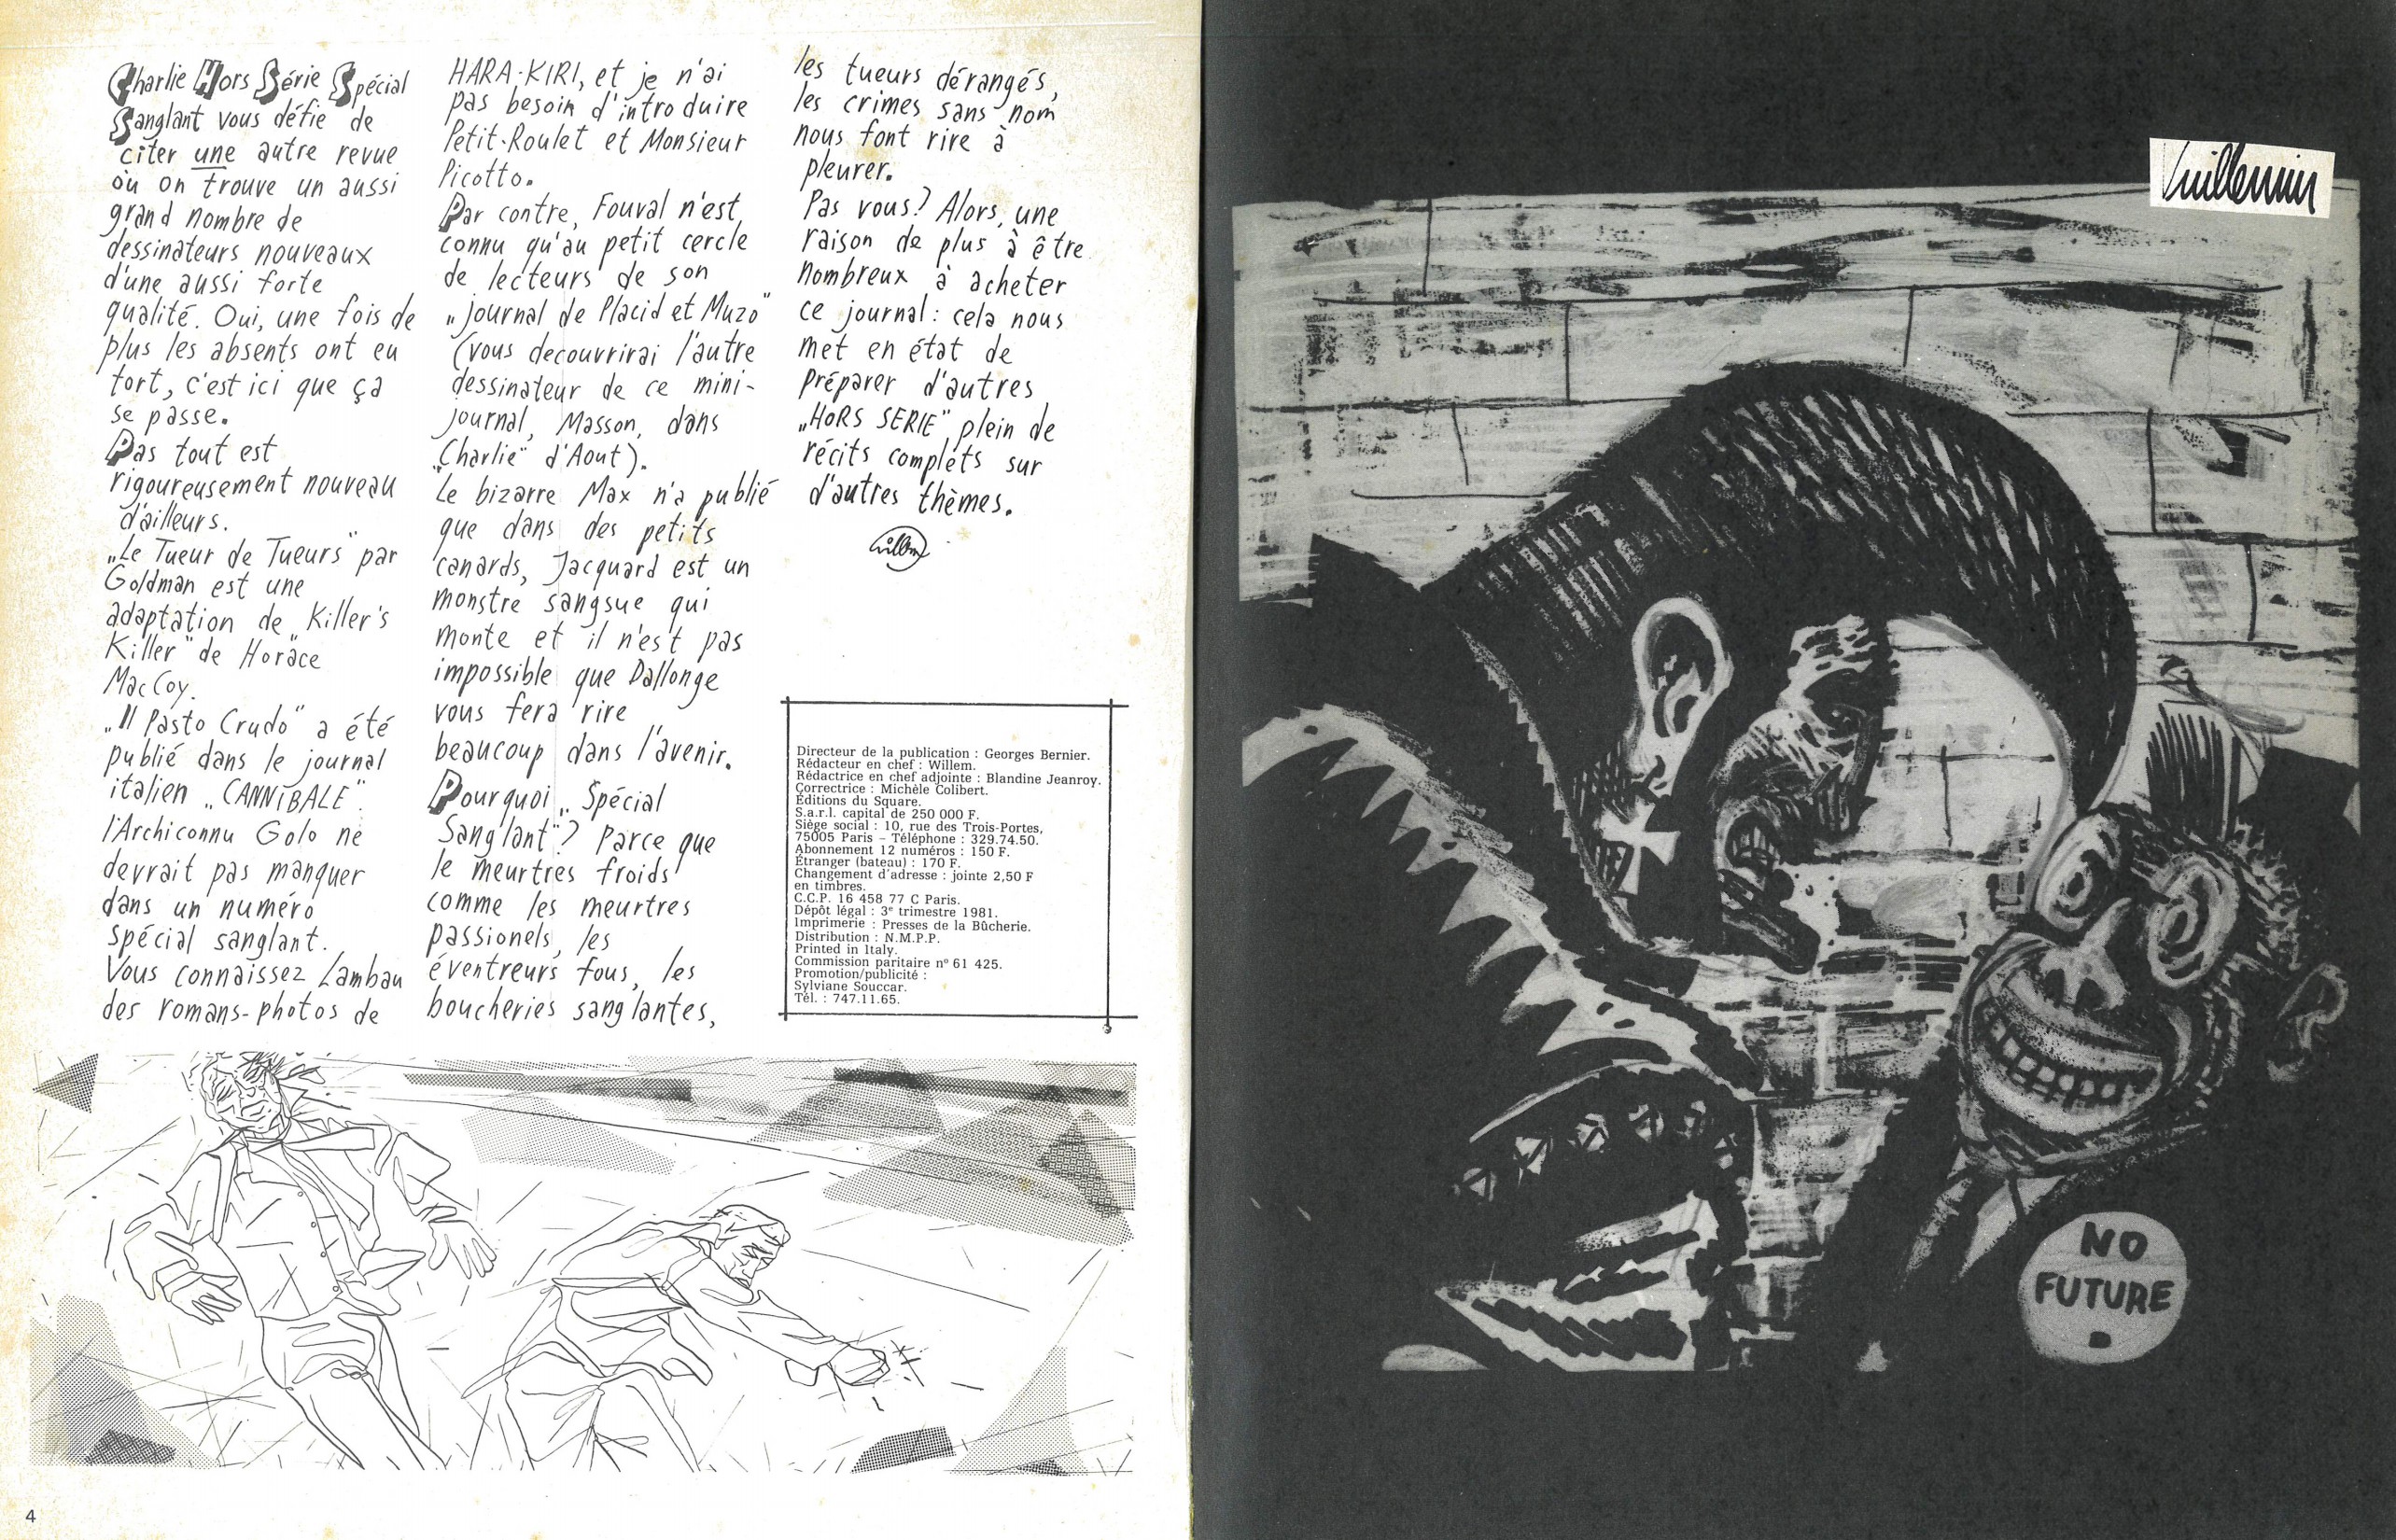 Charlie Hors Série Spécial
Sanglant vous défie de
citer une autre revue
où on trouve un aussi
grand nombre de
dessinateurs nouveaux
d'une aussi forte
qualité. Oui, une fois de
plus les absents ont eu
tort, c'est ici que ça
se passe.
Pas tout est
rigoureusement nouveau
d'ailleurs.
„Le Tueur de Tueurs" par
Goldman est une
adaptation de „Killer's
Killer" de Horace
MacCoy.
„Il Pasto Crudo" a été
publié dans le journal
italien „CANNIBALE".
l'Archiconnu Golo ne
devrait pas manquer
dans un numéro
spécial sanglant.
Vous connaissez Lambau
des romans-photos de
HARA-KIRI, et je n'ai
pas besoin d'introduire
Petit-Roulet et Monsieur
Picotto.
Par contre, Fouval n'est
connu qu'au petit cercle
de lecteurs de son
„journal de Placid et Muzo"
(vous decouvrirai l'autre
dessinateur de ce mini-
journal, Masson, dans
„Charlie" d'Aout).
Le bizarre Max n'a publié
que dans des petits
canards, Jacquard est un
monstre sangsue qui
monte et il n'est pas
impossible que Dallonge
vous fera rire
beaucoup dans l'avenir.
Pourquoi „Spécial
Sanglant"? Parce que
le meurtres froids
comme les meurtres
passionels, les
éventreurs fous, les
boucheries sanglantes,
les tueurs dérangés,
les crimes sans nom
nous font rire à
pleurer.
Pas vous? Alors, une
raison de plus à être
nombreux à acheter
ce journal: cela nous
met en état de
préparer d'autres
„HORS SERIE" plein de
récits complets sur
d'autres thèmes.
Willem
Directeur de la publication : Georges Bernier.
Rédacteur en chef : Willem.
Rédactrice en chef adjointe : Blandine Jeanroy.
Correctrice : Michèle Colibert.
Éditions du Square.
S.a.r.l. capital de 250 000 F.
Siège social : 10, rue des Trois-Portes,
75005 Paris – Téléphone : 329.74.50.
Abonnement 12 numéros : 150 F.
Étranger (bateau) : 170 F.
Changement d'adresse : jointe 2,50 F
en timbres.
C.C.P. 16 458 77 C Paris.
Dépôt légal : 3e trimestre 1981.
Imprimerie : Presses de la Bûcherie.
Distribution : N.M.P.P.
Printed in Italy.
Commission paritaire nº 61 425.
Promotion/publicité :
Sylviane Souccar.
Tél. : 747.11.65.
4
Vuillemin
NO
FUTURE